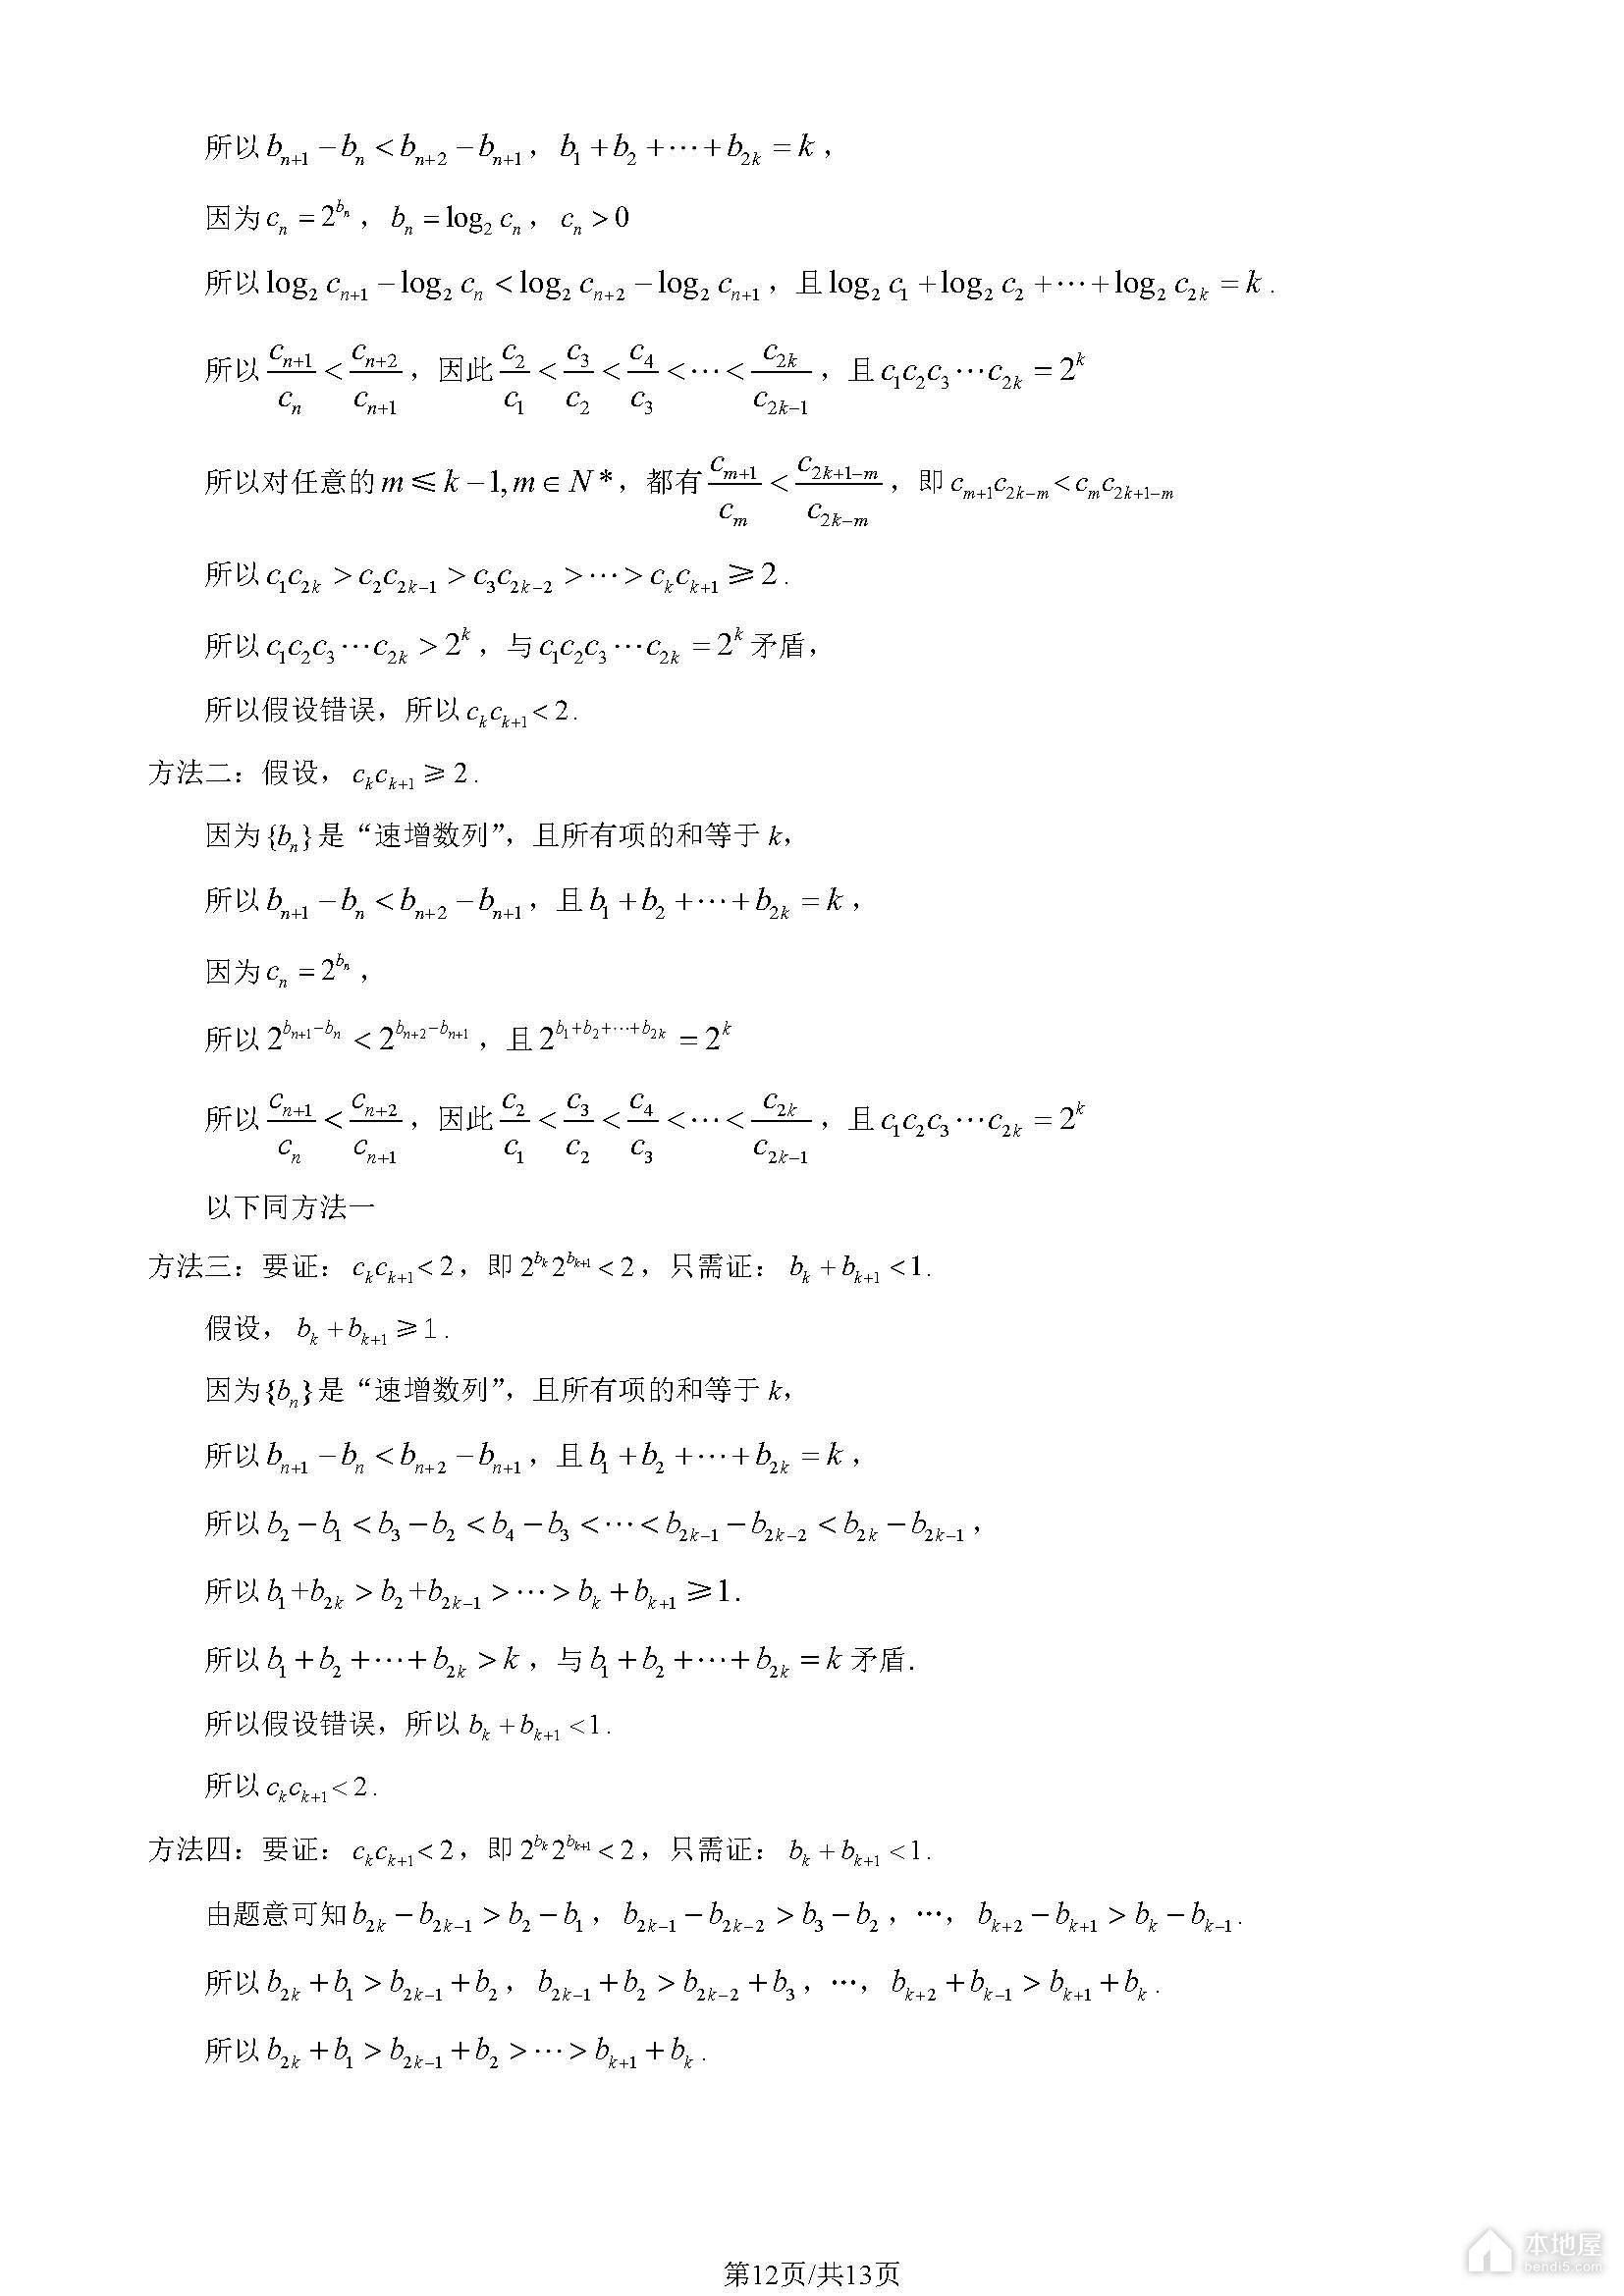 所以 b_{n+1} − b_n < b_{n+2} − b_{n+1}， b_1 + b_2 + ⋯ + b_{2k} = k，
因为 c_n = 2^{b_n}， b_n = log_2 c_n， c_n > 0
所以 log_2 c_{n+1} − log_2 c_n < log_2 c_{n+2} − log_2 c_{n+1}，且 log_2 c_1 + log_2 c_2 + ⋯ + log_2 c_{2k} = k .
所以 \frac{c_{n+1}}{c_n} < \frac{c_{n+2}}{c_{n+1}}，因此 \frac{c_2}{c_1} < \frac{c_3}{c_2} < \frac{c_4}{c_3} < ⋯ < \frac{c_{2k}}{c_{2k−1}}，且 c_1c_2c_3⋯c_{2k} = 2^k
所以对任意的 m ⩽ k − 1, m ∈ N *，都有 \frac{c_{m+1}}{c_m} < \frac{c_{2k+1−m}}{c_{2k−m}}，即 c_{m+1}c_{2k−m} < c_mc_{2k+1−m}
所以 c_1c_{2k} > c_2c_{2k−1} > c_3c_{2k−2} > ⋯ > c_kc_{k+1} ⩾ 2 .
所以 c_1c_2c_3⋯c_{2k} > 2^k，与 c_1c_2c_3⋯c_{2k} = 2^k 矛盾，
所以假设错误，所以 c_kc_{k+1} < 2 .
方法二：假设， c_kc_{k+1} ⩾ 2 .
因为{b_n}是“速增数列”，且所有项的和等于 k，
所以 b_{n+1} − b_n < b_{n+2} − b_{n+1}，且 b_1 + b_2 + ⋯ + b_{2k} = k，
因为 c_n = 2^{b_n}，
所以 2^{b_{n+1}−b_n} < 2^{b_{n+2}−b_{n+1}}，且 2^{b_1+b_2+⋯+b_{2k}} = 2^k
所以 \frac{c_{n+1}}{c_n} < \frac{c_{n+2}}{c_{n+1}}，因此 \frac{c_2}{c_1} < \frac{c_3}{c_2} < \frac{c_4}{c_3} < ⋯ < \frac{c_{2k}}{c_{2k−1}}，且 c_1c_2c_3⋯c_{2k} = 2^k
以下同方法一
方法三：要证： c_kc_{k+1} < 2，即 2^{b_k}2^{b_{k+1}} < 2，只需证： b_k + b_{k+1} < 1 .
假设， b_k + b_{k+1} ⩾ 1 .
因为{b_n}是“速增数列”，且所有项的和等于 k，
所以 b_{n+1} − b_n < b_{n+2} − b_{n+1}，且 b_1 + b_2 + ⋯ + b_{2k} = k，
所以 b_2 − b_1 < b_3 − b_2 < b_4 − b_3 < ⋯ < b_{2k−1} − b_{2k−2} < b_{2k} − b_{2k−1}，
所以 b_1+b_{2k} > b_2+b_{2k−1} > ⋯ > b_k + b_{k+1} ⩾ 1.
所以 b_1 + b_2 + ⋯ + b_{2k} > k，与 b_1 + b_2 + ⋯ + b_{2k} = k 矛盾.
所以假设错误，所以 b_k + b_{k+1} < 1 .
所以 c_kc_{k+1} < 2 .
方法四：要证： c_kc_{k+1} < 2，即 2^{b_k}2^{b_{k+1}} < 2，只需证： b_k + b_{k+1} < 1 .
由题意可知 b_{2k} − b_{2k−1} > b_2 − b_1， b_{2k−1} − b_{2k−2} > b_3 − b_2，⋯， b_{k+2} − b_{k+1} > b_k − b_{k−1} .
所以 b_{2k} + b_1 > b_{2k−1} + b_2， b_{2k−1} + b_2 > b_{2k−2} + b_3，⋯， b_{k+2} + b_{k−1} > b_{k+1} + b_k .
所以 b_{2k} + b_1 > b_{2k−1} + b_2 > ⋯ > b_{k+1} + b_k .
第12页/共13页
本地屋
bendi5.com